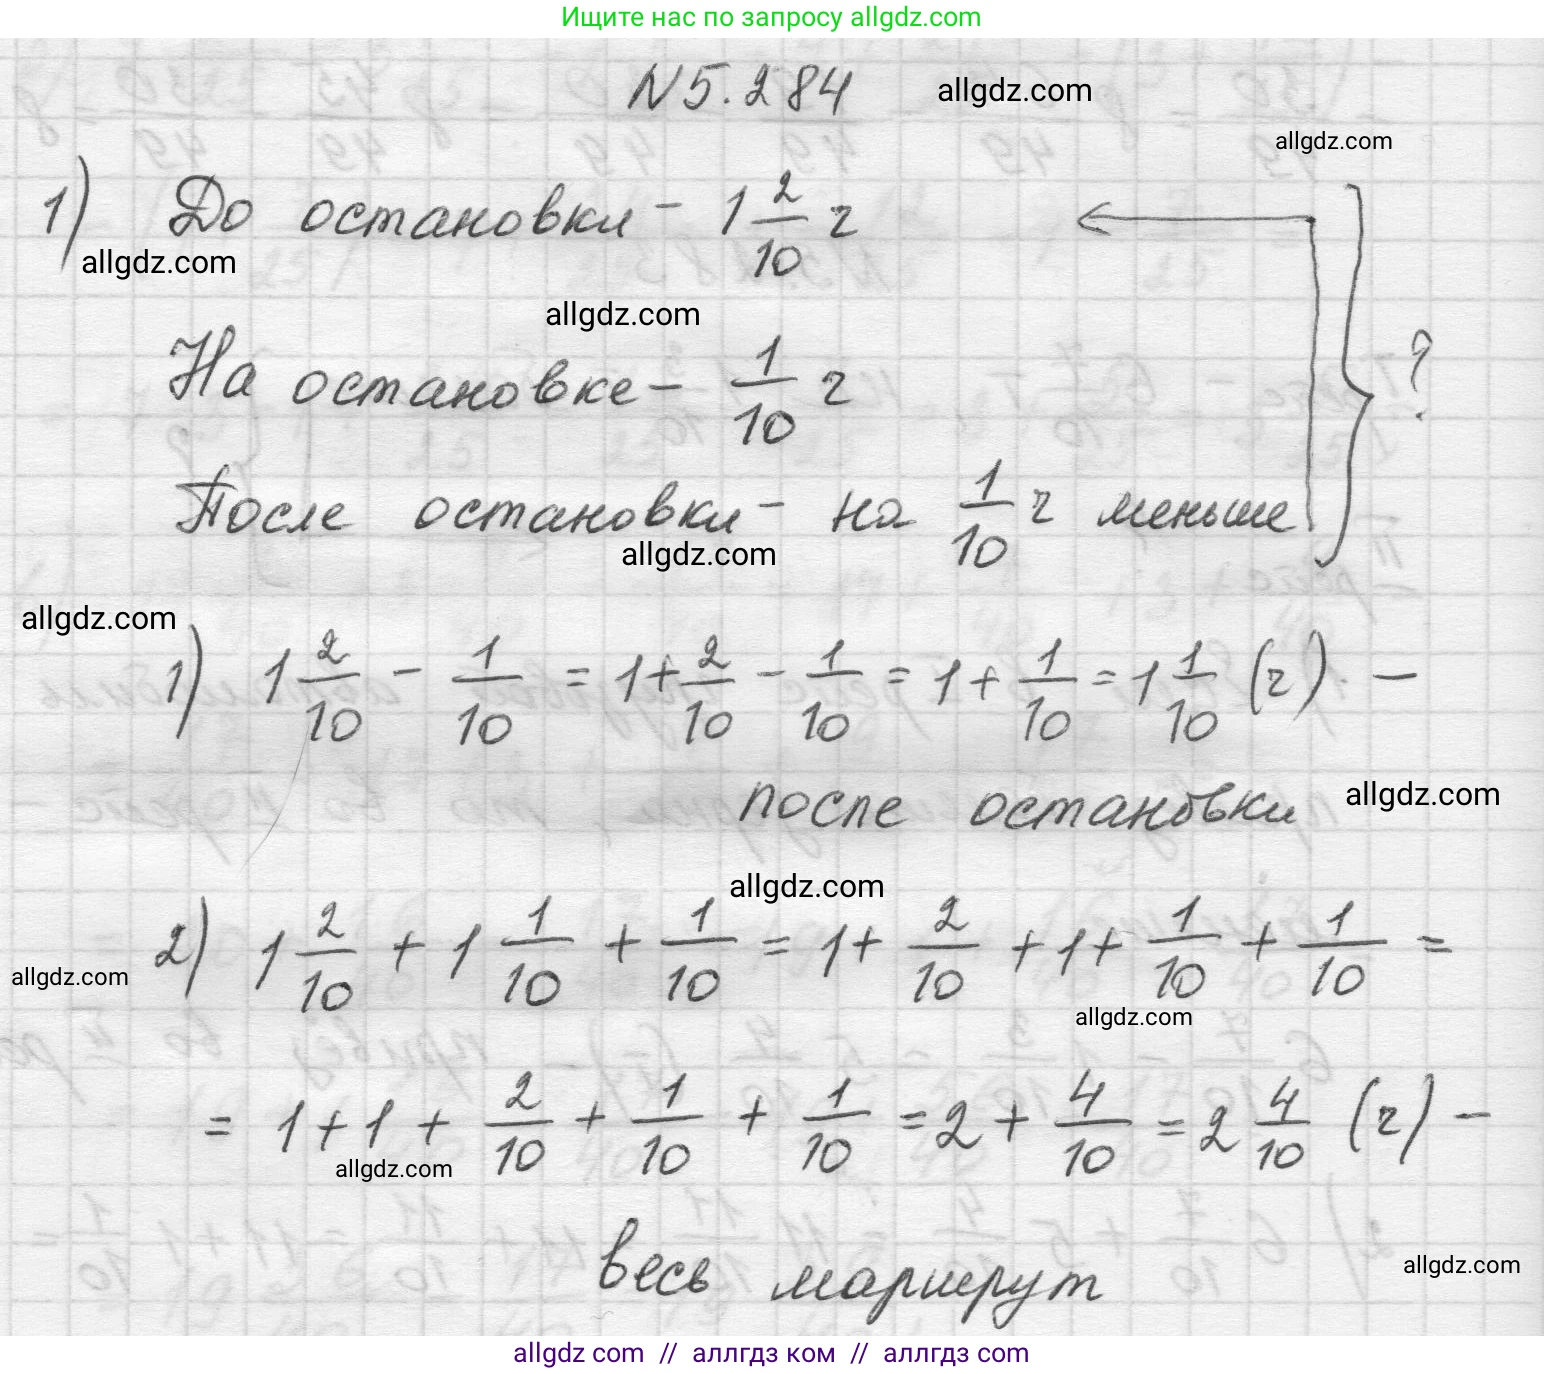 Ищите нас по запросу allgdz.com
N 5.284 allgdz.com
allgdz.com
1) До остановки - 1 2/10 ч
allgdz.com
allgdz.com
На остановке - 1/10 ч
?
После остановки - на 1/10 ч меньше
allgdz.com
allgdz.com
1) 1 2/10 - 1/10 = 1 + 2/10 - 1/10 = 1 + 1/10 = 1 1/10 (ч) -
после остановки allgdz.com
allgdz.com
2) 1 2/10 + 1 1/10 + 1/10 = 1 + 2/10 + 1 + 1/10 + 1/10 =
allgdz.com
allgdz.com
= 1 + 1 + 2/10 + 1/10 + 1/10 = 2 + 4/10 = 2 4/10 (ч) -
allgdz.com
весь маршрут allgdz.com
allgdz com // аллгдз ком // аллгдз com